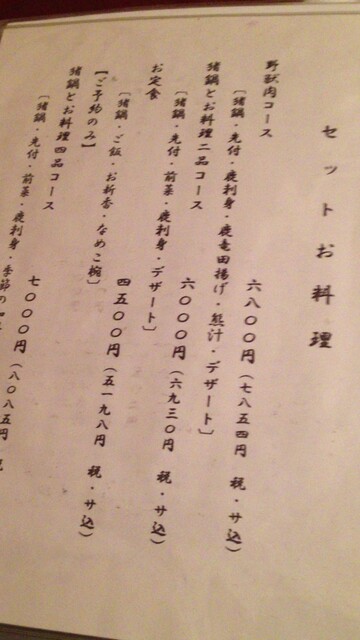 セットお料理
野獣肉コース
六八〇〇円(七八五四円 税・サ込)
〔猪鍋・先付・鹿刺身・鹿竜田揚げ・熊汁・デザート〕
猪鍋とお料理二品コース
六〇〇〇円(六九三〇円 税・サ込)
〔猪鍋・先付・前菜・鹿刺身・デザート〕
お定食
四五〇〇円(五一九八円 税・サ込)
〔猪鍋・ご飯・お新香・なめこ椀〕
【ご予約のみ】
猪鍋とお料理四品コース
七〇〇〇円(八〇八五円 税
〔猪鍋・先付・前菜・鹿刺身・季節の